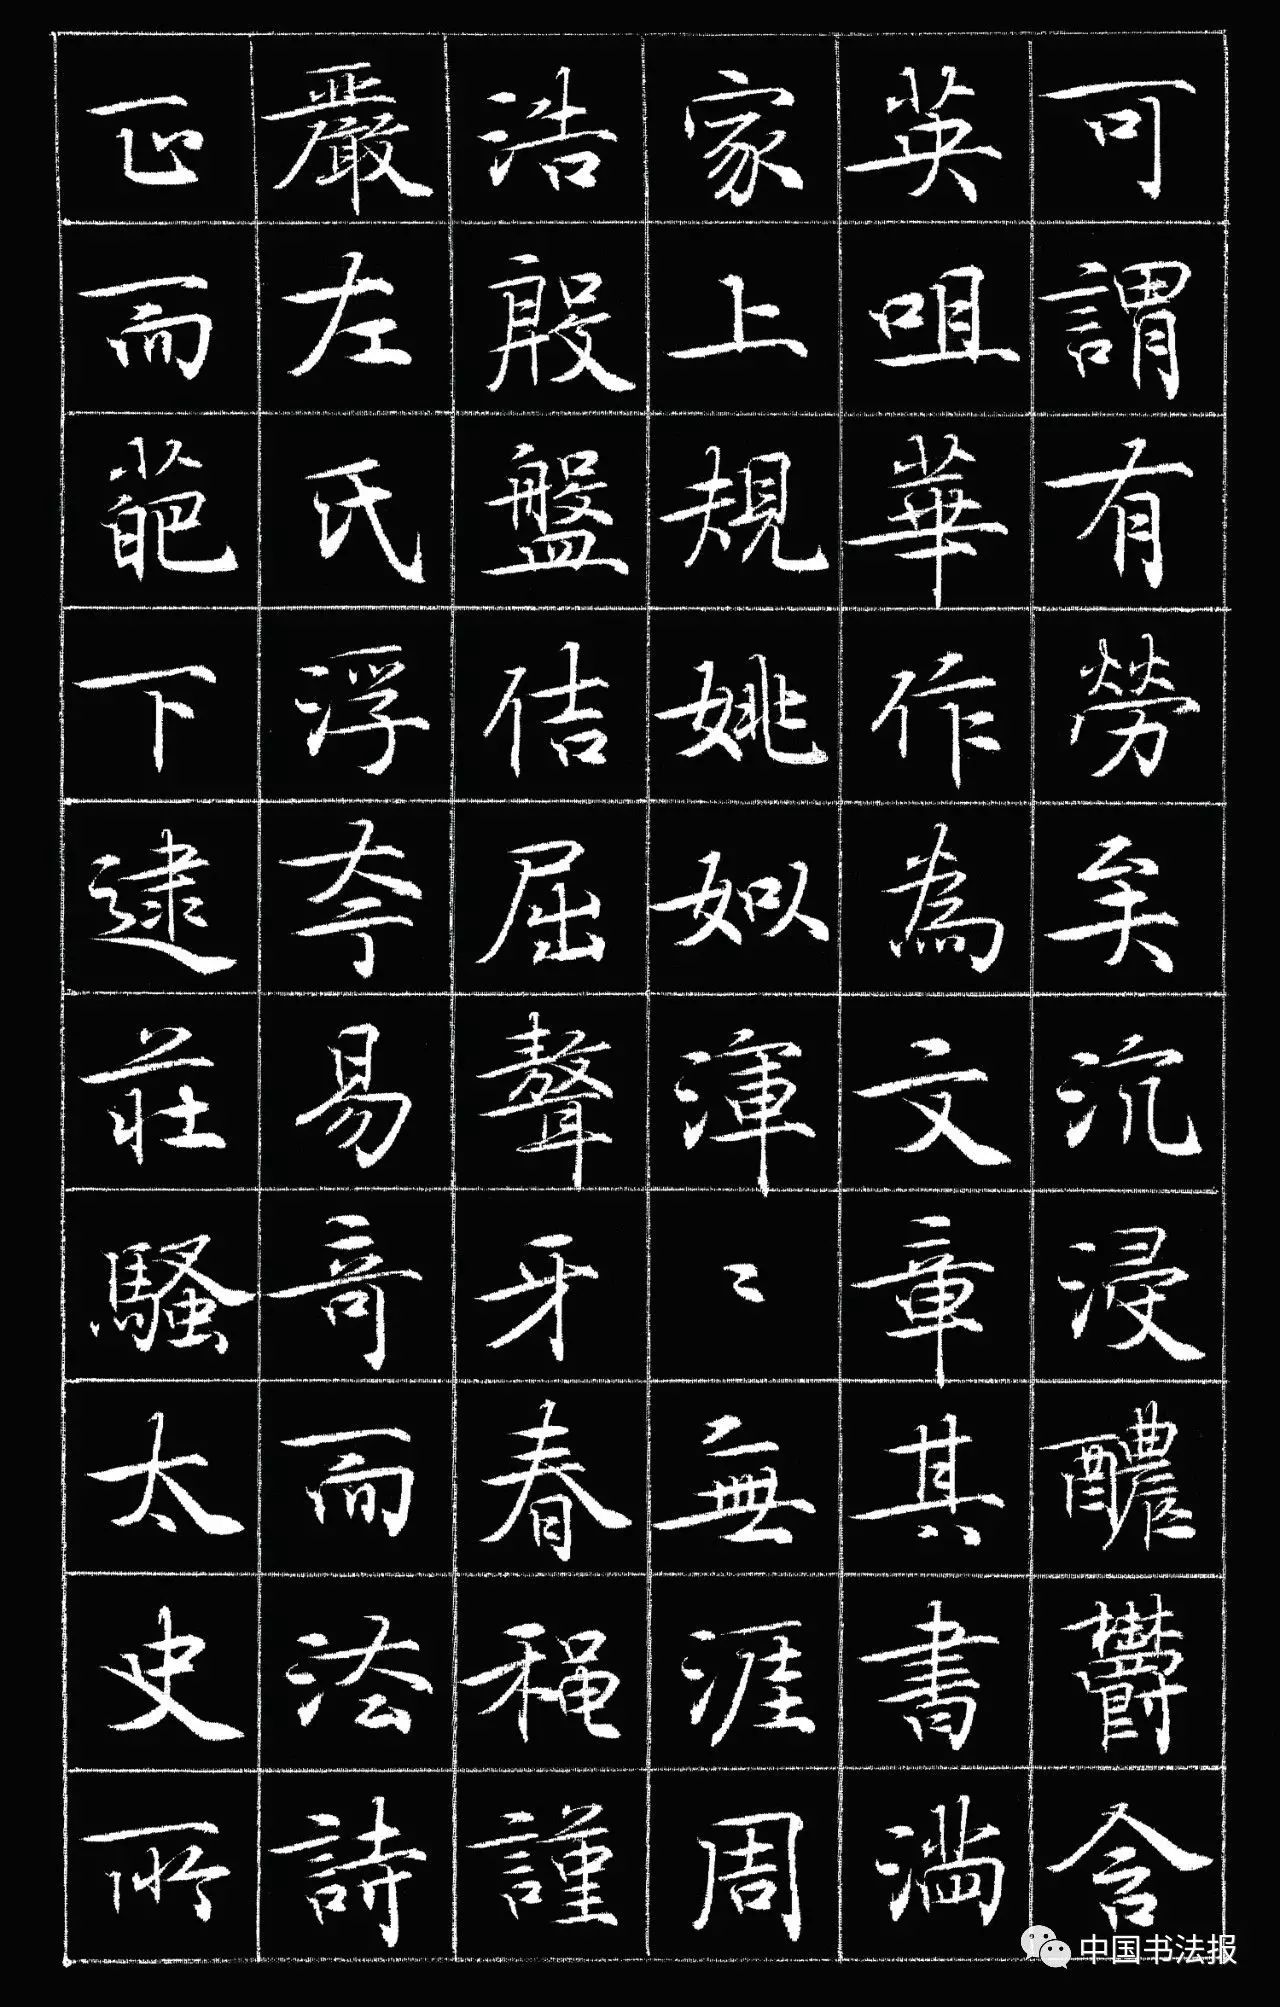 可謂有勞矣沉浸醲鬱含
英咀華作為文章其書滿
家上規姚姒渾〻無涯周
浩殷盤佶屈聱牙春䋲謹
嚴左氏浮夸易奇而法詩
正而葩下逮莊騷太史所
中国书法报